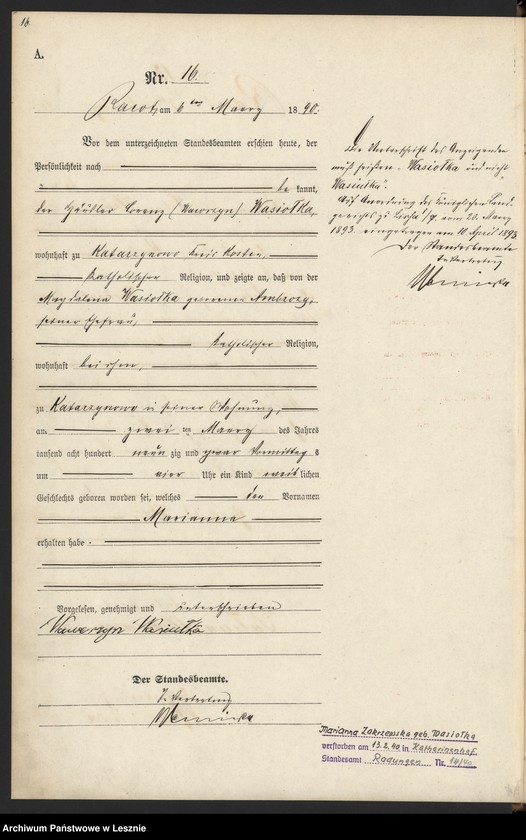 16.
A.
Nr. 16.
Racot, am 6ten Maerz 1890.
Vor dem unterzeichneten Standesbeamten erschien heute, der
Persönlichkeit nach
be kannt,
der Häusler Lorenz (Wawrzyn) Wasiołka,
wohnhaft zu Katarzynowo Kreis Kosten,
katholischer Religion, und zeigte an, daß von der
Magdalena Wasiołka geborenen Ambrozy,
seiner Ehefrau,
katholischer Religion,
wohnhaft bei ihm,
zu Katarzynowo in seiner Wohnung,
am zwei ten Maerz des Jahres
tausend acht hundert neun zig und zwar Vormittag s
um vier Uhr ein Kind weib lichen
Geschlechts geboren worden sei, welches den Vornamen
Marianna
erhalten habe.
Vorgelesen, genehmigt und unterschrieben
Wawrzyn
Der Standesbeamte.
In Vertretung
Die Unterschrift des Anzeigenden
muß heißen „Wasiołka" und nicht
Auf Anordnung des Königlichen Land-
gerichts zu Lissa i/P. vom 20. Maerz
1893. eingetragen am 10 April 1893.
Der Standesbeamte
In Vertretung
Marianna Zakrzewska geb. Wasiołka
verstorben am 13.2.40 in Katharinenhof
Standesamt Radungen Nr. 14/40
Archiwum Państwowe w Lesznie